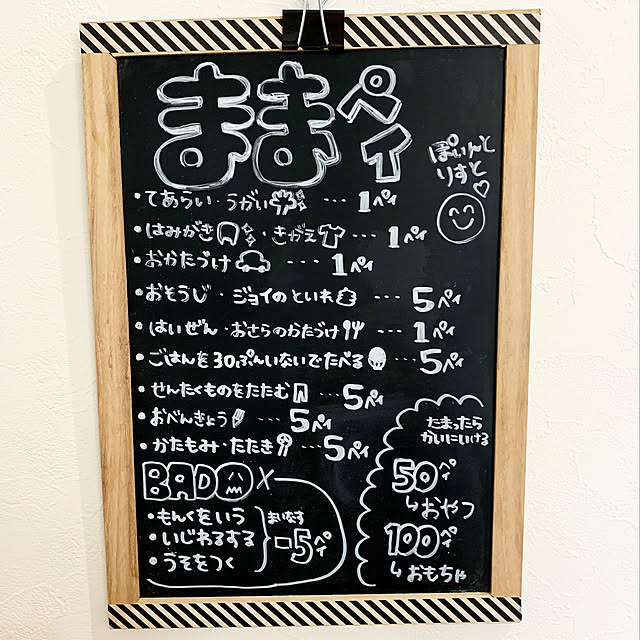 ままペイ
ぽいんと
りすと
・てあらい・うがい … 1ペイ
・はみがき・きがえ … 1ペイ
・おかたづけ … 1ペイ
・おそうじ・ジョイのといれ … 5ペイ
・はいぜん・おさらのかたづけ … 1ペイ
・ごはんを30ぷんいないでたべる … 5ペイ
・せんたくものをたたむ … 5ペイ
・おべんきょう … 5ペイ
・かたもみ・たたき … 5ペイ
BADO×
・もんくをいう
・いじわるする
・うそをつく
まいなす
-5ペイ
たまったら
かいにいける
50ペイ
↳おやつ
100ペイ
↳おもちゃ